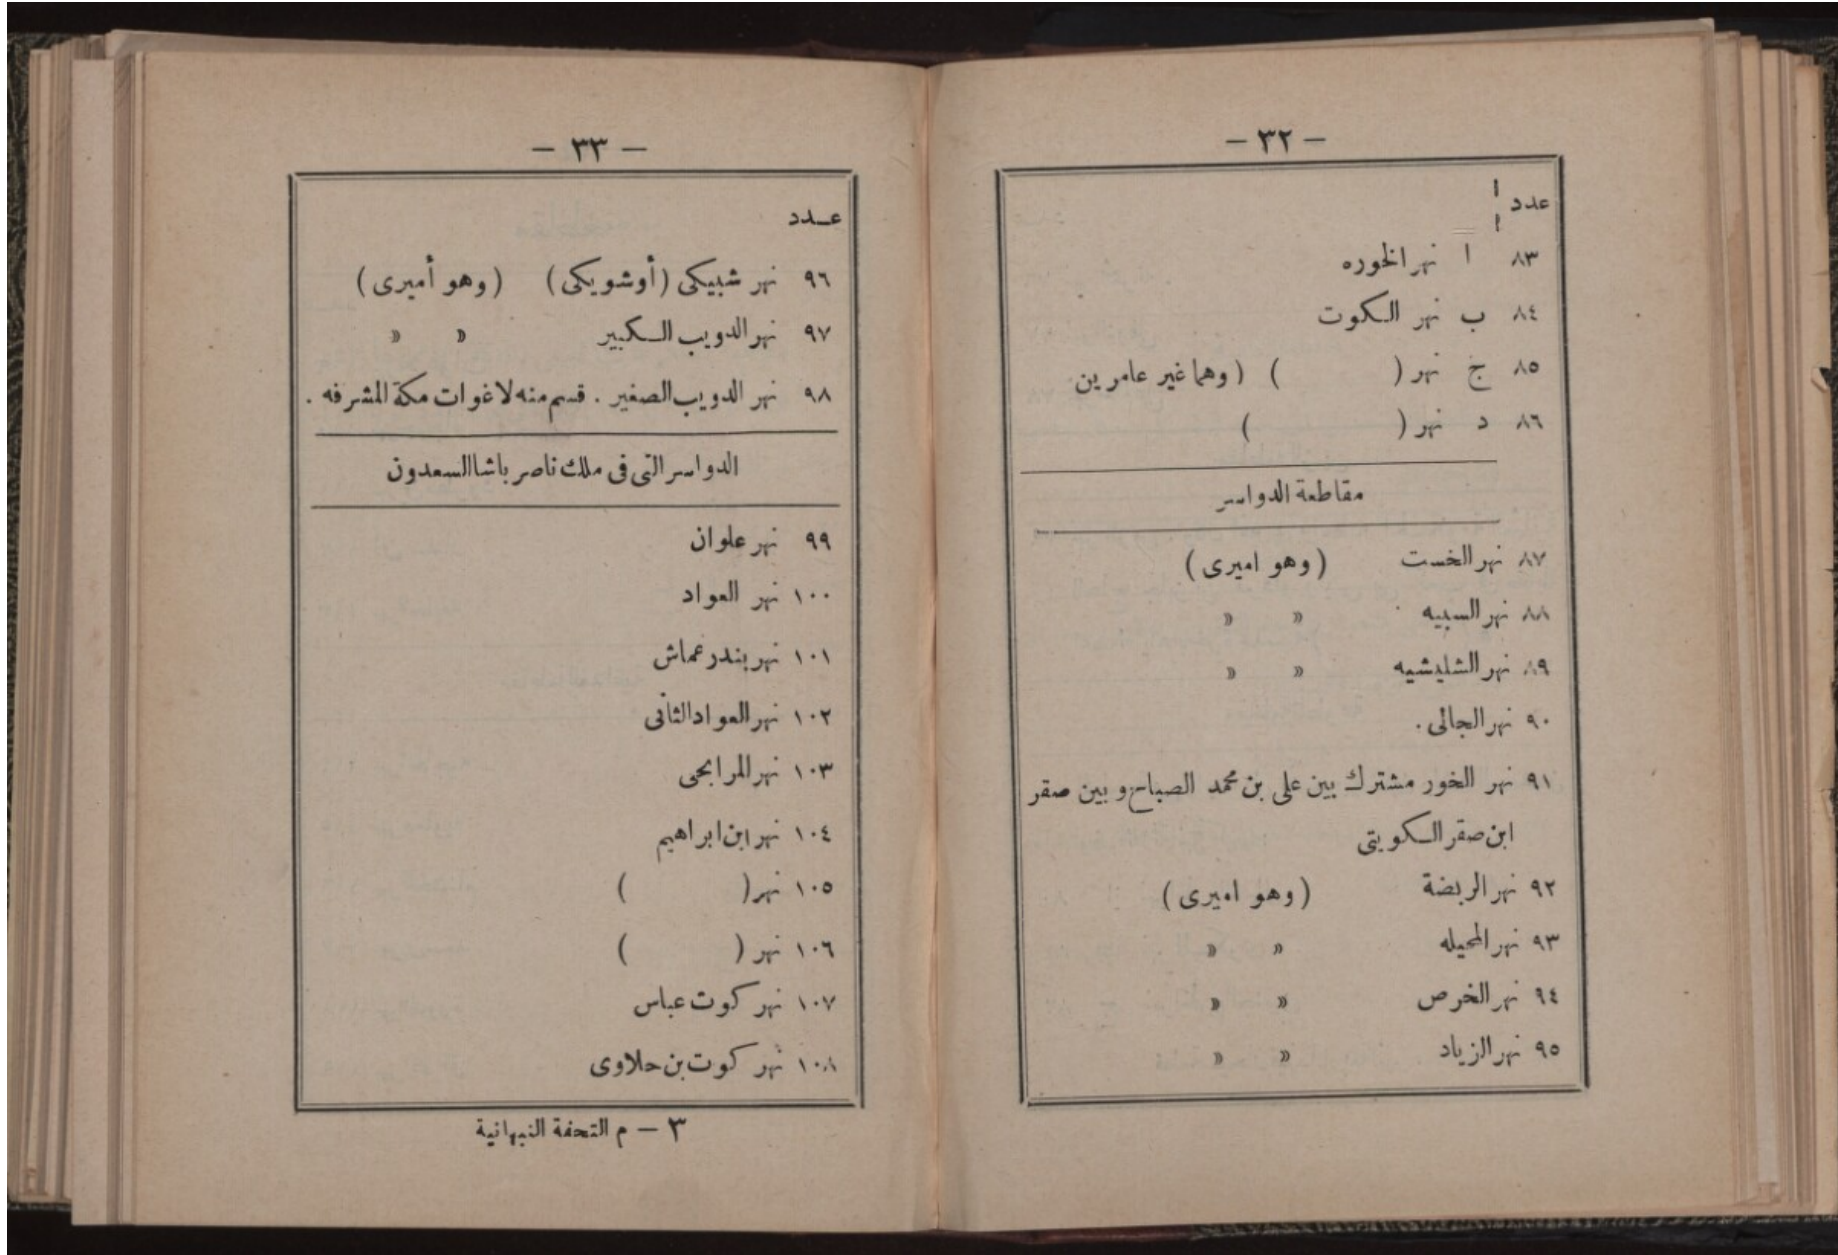 — ٣٢ —
عدد
٨٣ ا نهر الخوره
٨٤ ب نهر الكوت
٨٥ ج نهر ( ) ( وهما غير عامرين
٨٦ د نهر ( )
مقاطعة الدواسر
٨٧ نهر الخست ( وهو اميرى )
٨٨ نهر السبيه » »
٨٩ نهر الشليشيه » »
٩٠ نهر الجالى .
٩١ نهر الخور مشترك بين على بن محمد الصباح و بين صقر
ابن صقر الكويتى
٩٢ نهر الربضة ( وهو اميرى )
٩٣ نهر المحيله » »
٩٤ نهر الخرص » »
٩٥ نهر الزياد » »
— ٣٣ —
عدد
٩٦ نهر شبيكى ( أوشويكى ) ( وهو أميرى )
٩٧ نهر الدويب الكبير » »
٩٨ نهر الدويب الصغير . قسم منه لاغوات مكة المشرفه .
الدواسر التى فى ملك ناصر باشا السعدون
٩٩ نهر علوان
١٠٠ نهر العواد
١٠١ نهر بندر عماش
١٠٢ نهر العواد الثانى
١٠٣ نهر المرابجى
١٠٤ نهر ابن ابراهيم
١٠٥ نهر ( )
١٠٦ نهر ( )
١٠٧ نهر كوت عباس
١٠٨ نهر كوت بن حلاوى
٣ — م التحفة النبهانية